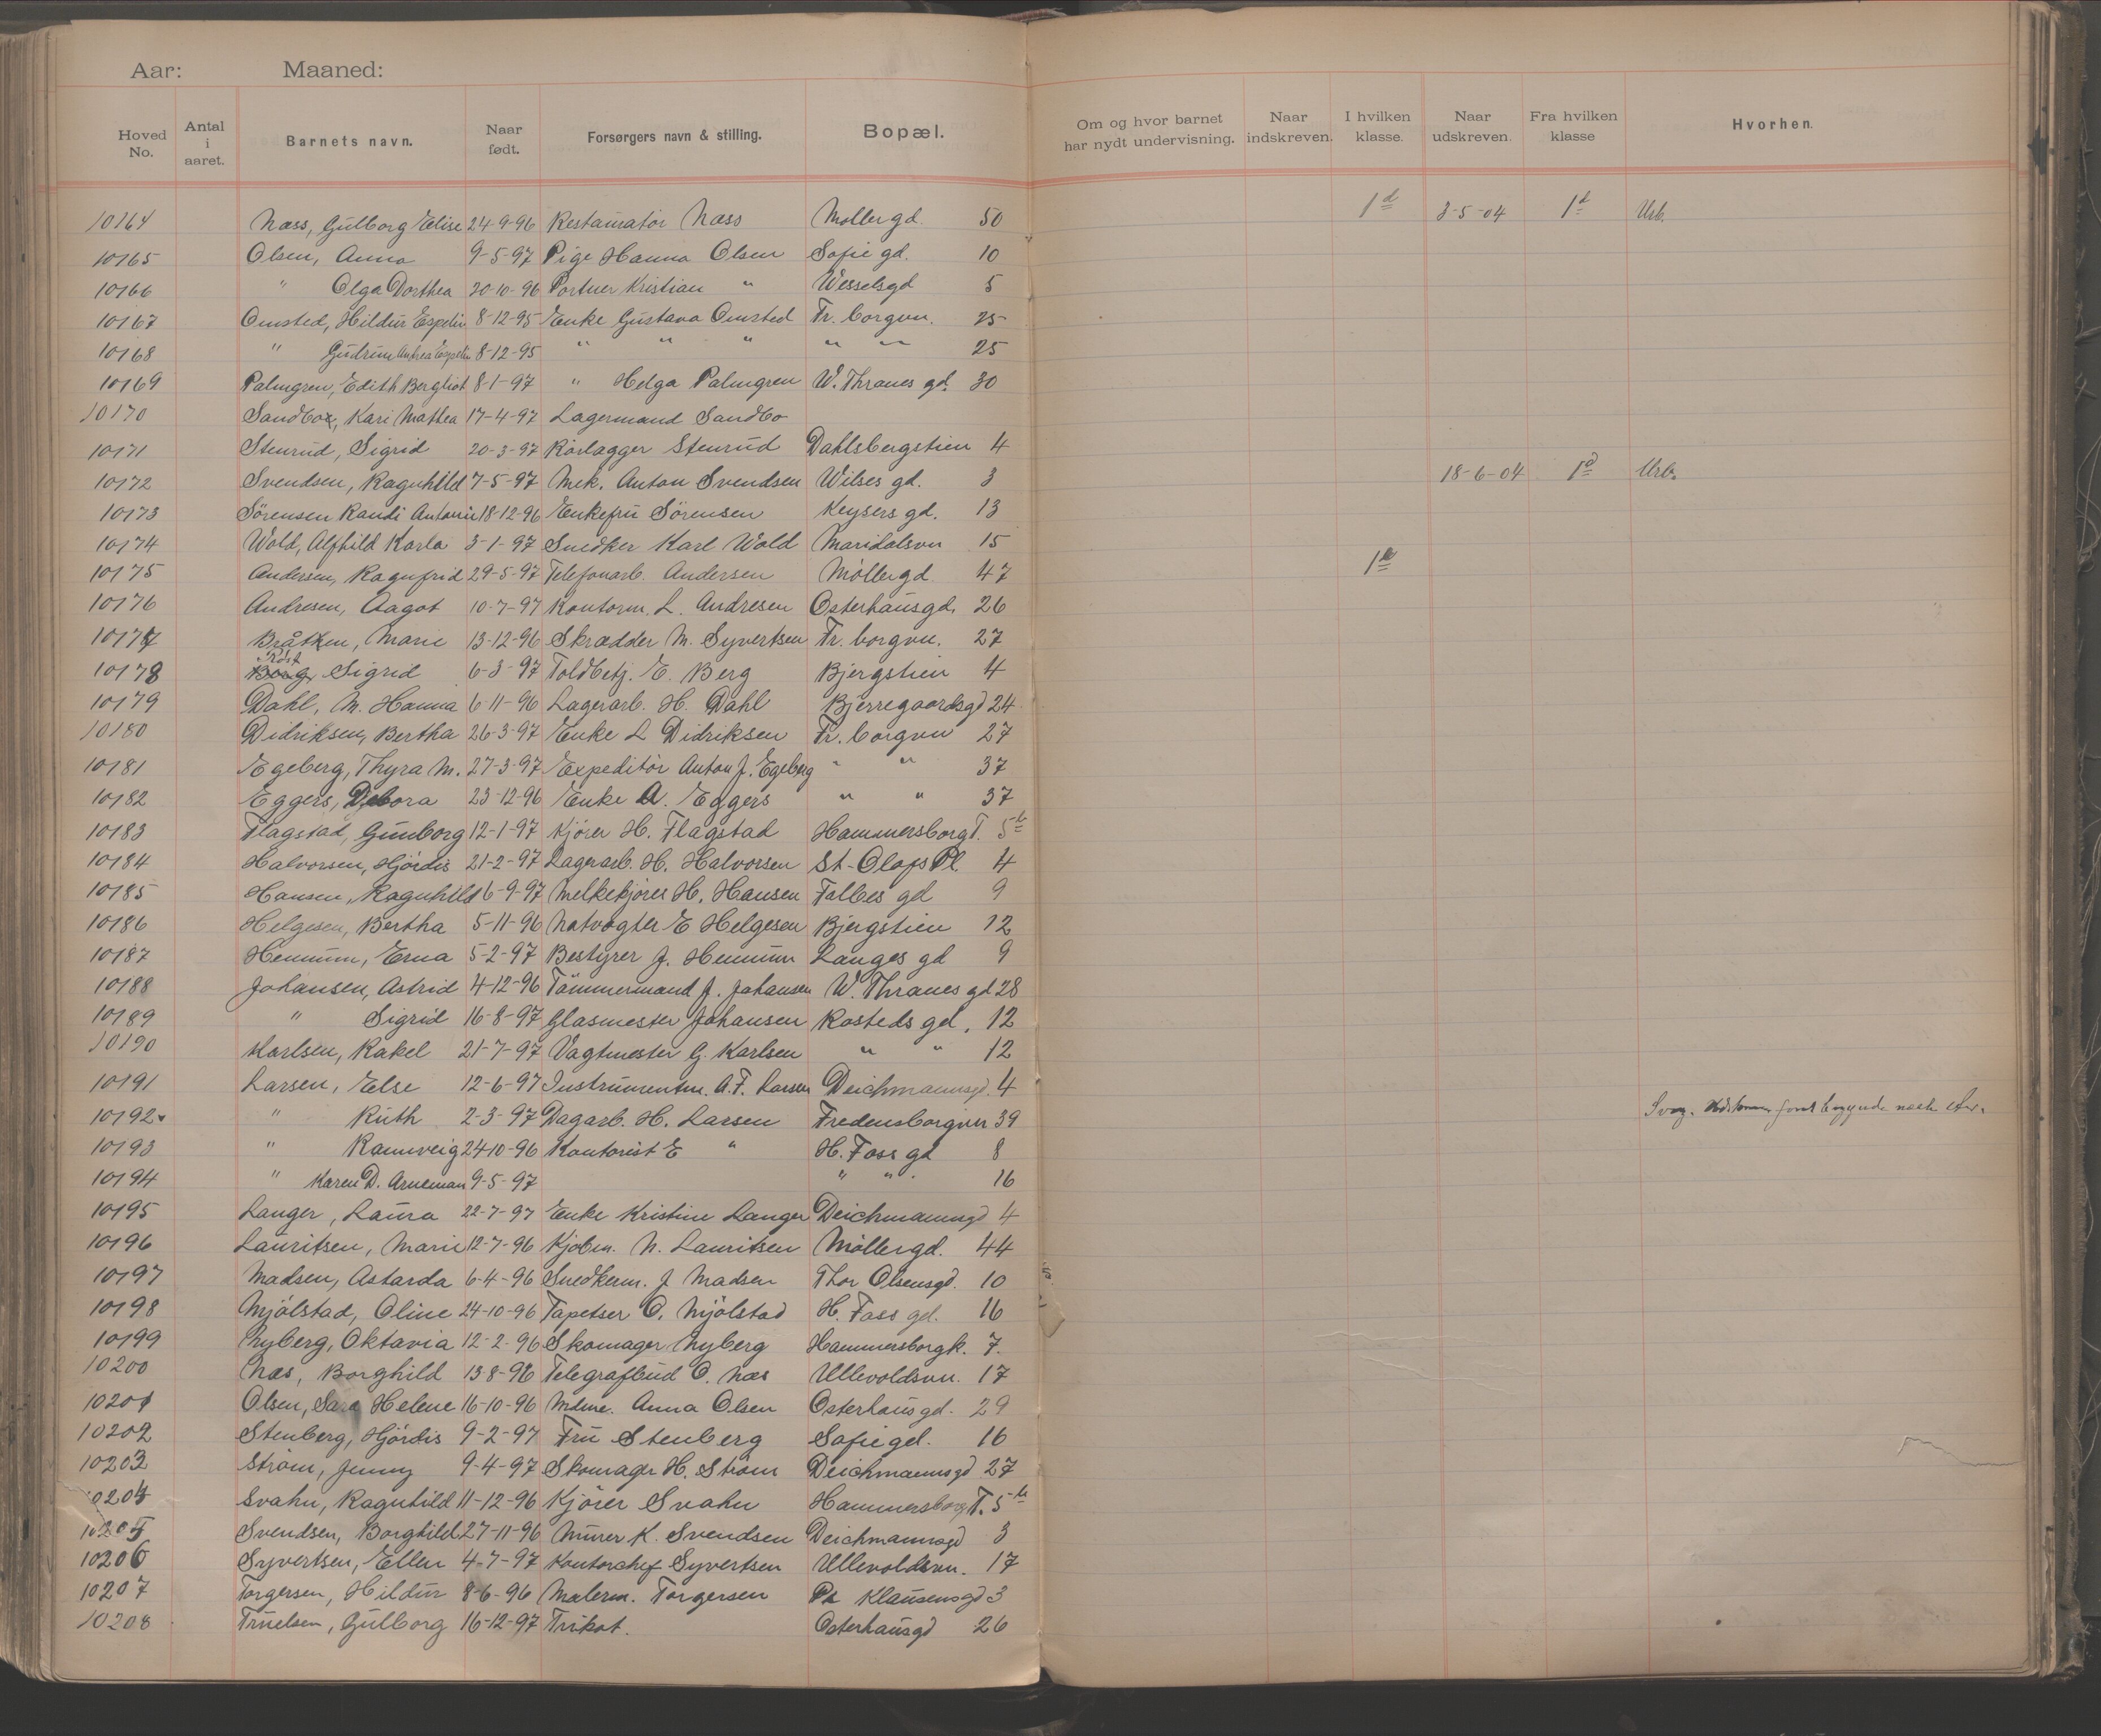 Aar: Maaned:
Hoved No. Antal i aaret. Barnets navn. Naar født. Forsørgers navn & stilling. Bopæl. Om og hvor barnet har nydt undervisning. Naar indskreven. I hvilken klasse. Naar udskreven. Fra hvilken klasse Hvorhen.
10164 Næss, Gulborg Elise 24-9-96 Restauratör Næss Mollergd. 50 1d 3-5-04 1d Urb.
10165 Olsen, Anna 9-5-97 Pige Hanna Olsen Sofie gd. 10
10166 " Olga Dorthea 20-10-96 Portner Kristian " Wesselsgd 5
10167 Omsted, Hildur Espelin 8-12-95 Enke Gustava Omsted Fr. borgvn. 25
10168 " Gudrun Anhea Espelin 8-12-95 " " " " " 25
10169 Palmgren, Edith Bergliot 8-1-97 " Helga Palmgren W. Thranes gd. 30
10170 Sandbo, Kari Mathea 17-4-97 Lagermand Sandbo
10171 Stenrud, Sigrid 20-3-97 Rörlægger Stenrud Dahlsbergstien 4
10172 Svendsen, Ragnhild 7-5-97 Mek. Anton Svendsen Wilses gd. 3 18-6-04 1d Urb.
10173 Sörensen Randi Antonie 18-12-96 Enkefru Sörensen Keysers gd. 13
10174 Wold, Alfhild Karla 3-1-97 Snedker Karl Wold Maridalsvn 15
10175 Andersen, Ragnfrid 29-5-97 Telefonarb. Andersen Möllergd. 47 1
10176 Andresen, Aagot 10-7-97 Kontorm. L. Andresen Osterhausgd. 26
10177 Bråten, Marie 13-12-96 Skrædder M. Syvertsen Fr. borgvn. 27
10178 Röst Berg, Sigrid 6-3-97 Toldbetj. E. Berg Bjergstien 4
10179 Dahl, M. Hanna 6 11-96 Lagerarb. H. Dahl Bjerregaardsgd 24
10180 Didriksen, Bertha 26-3-97 Enke L Didriksen Fr. borgvn 27
10181 Egeberg, Thyra M. 27-3-97 Expeditör Anton J. Egeberg " " 37
10182 Eggers, Debora 23-12-96 Enke A. Eggers " " 37
10183 Flagstad, Gunborg 12-1-97 Kjörer H. Flagstad Hammersborg T. 5b
10184 Halvorsen, Hjördis 21-2-97 Lagerarb. H. Halvorsen St-Olafs Pl. 4
10185 Hansen, Ragnhild 6-9-97 Melkekjörer H. Hansen Falbes gd 9
10186 Helgesen, Bertha 5-11-96 Natvagter E Helgesen Bjergstien 12
10187 Hennum, Erna 5-2-97 Bestyrer J. Hennum Langes gd 9
10188 Johansen, Astrid 4-12-96 Tömmermand J. Johansen W. Thranes gd 28
10189 " Sigrid 16-8-97 Glasmester Johansen Rosteds gd. 12
10190 Karlsen, Rakel 21-7-97 Vagtmester G. Karlsen " " 12
10191 Larsen, Else 12-6-97 Instrumentm. A.F. Larsen Deichmannsgd. 4
10192 " Ruth 2-3-97 Dagarb. H. Larsen Fredensborgvn 39 Svag. först begynde næste Aar.
10193 " Rannveig 24-10-96 Kontorist E " H. Foss gd 8
10194 " Karen D. Arneman 9-5-97 " " 16
10195 Langer, Laura 22-7-97 Enke Kristine Langer Deichmannsgd 4
10196 Lauritsen, Marie 12-7-96 Kjøbm. N. Lauritsen Möllergd. 44
10197 Madsen, Astarda 6-4-96 Snedkerm. J Madsen Thor Olsensgd. 10
10198 Mjölstad, Oline 24-10-96 Tapetser O. Mjölstad H. Foss gd. 16
10199 Nyberg, Oktavia 12-2-96 Skomager Nyberg Hammersborgk. 7.
10200 Næs, Borghild 13-8-96 Telegrafbud O. Næs Ullevoldsvn. 17
10201 Olsen, Sara Helene 16-10-96 Mdme. Anna Olsen Osterhausgd. 29
10202 Stenberg, Hjördis 9-2-97 Fru Stenberg Sofiegd. 16
10203 Ström, Jenny 9-4-97 Skomager H. Ström Deichmannsgd 27
10204 Svahn, Ragnhild 11-12-96 Kjörer Svahn Hammersborg T. 5b
10205 Svendsen, Borghild 27-11-96 Murer K. Svendsen Deichmannsgd 3
10206 Syvertsen, Ellen 4-7-97 Kontorchef Syvertsen Ullevoldsvn. 17
10207 Torgersen, Hildur 8-6-96 Malerm. Torgersen Klausensgd 3
10208 Truelsen, Gulborg 16-12-97 Trikot. Osterhausgd 26